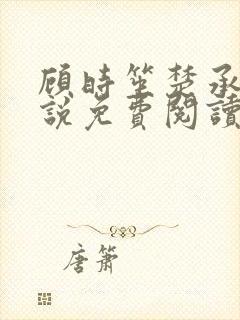 顾時笙楚承
說免費閱讀
唐簫